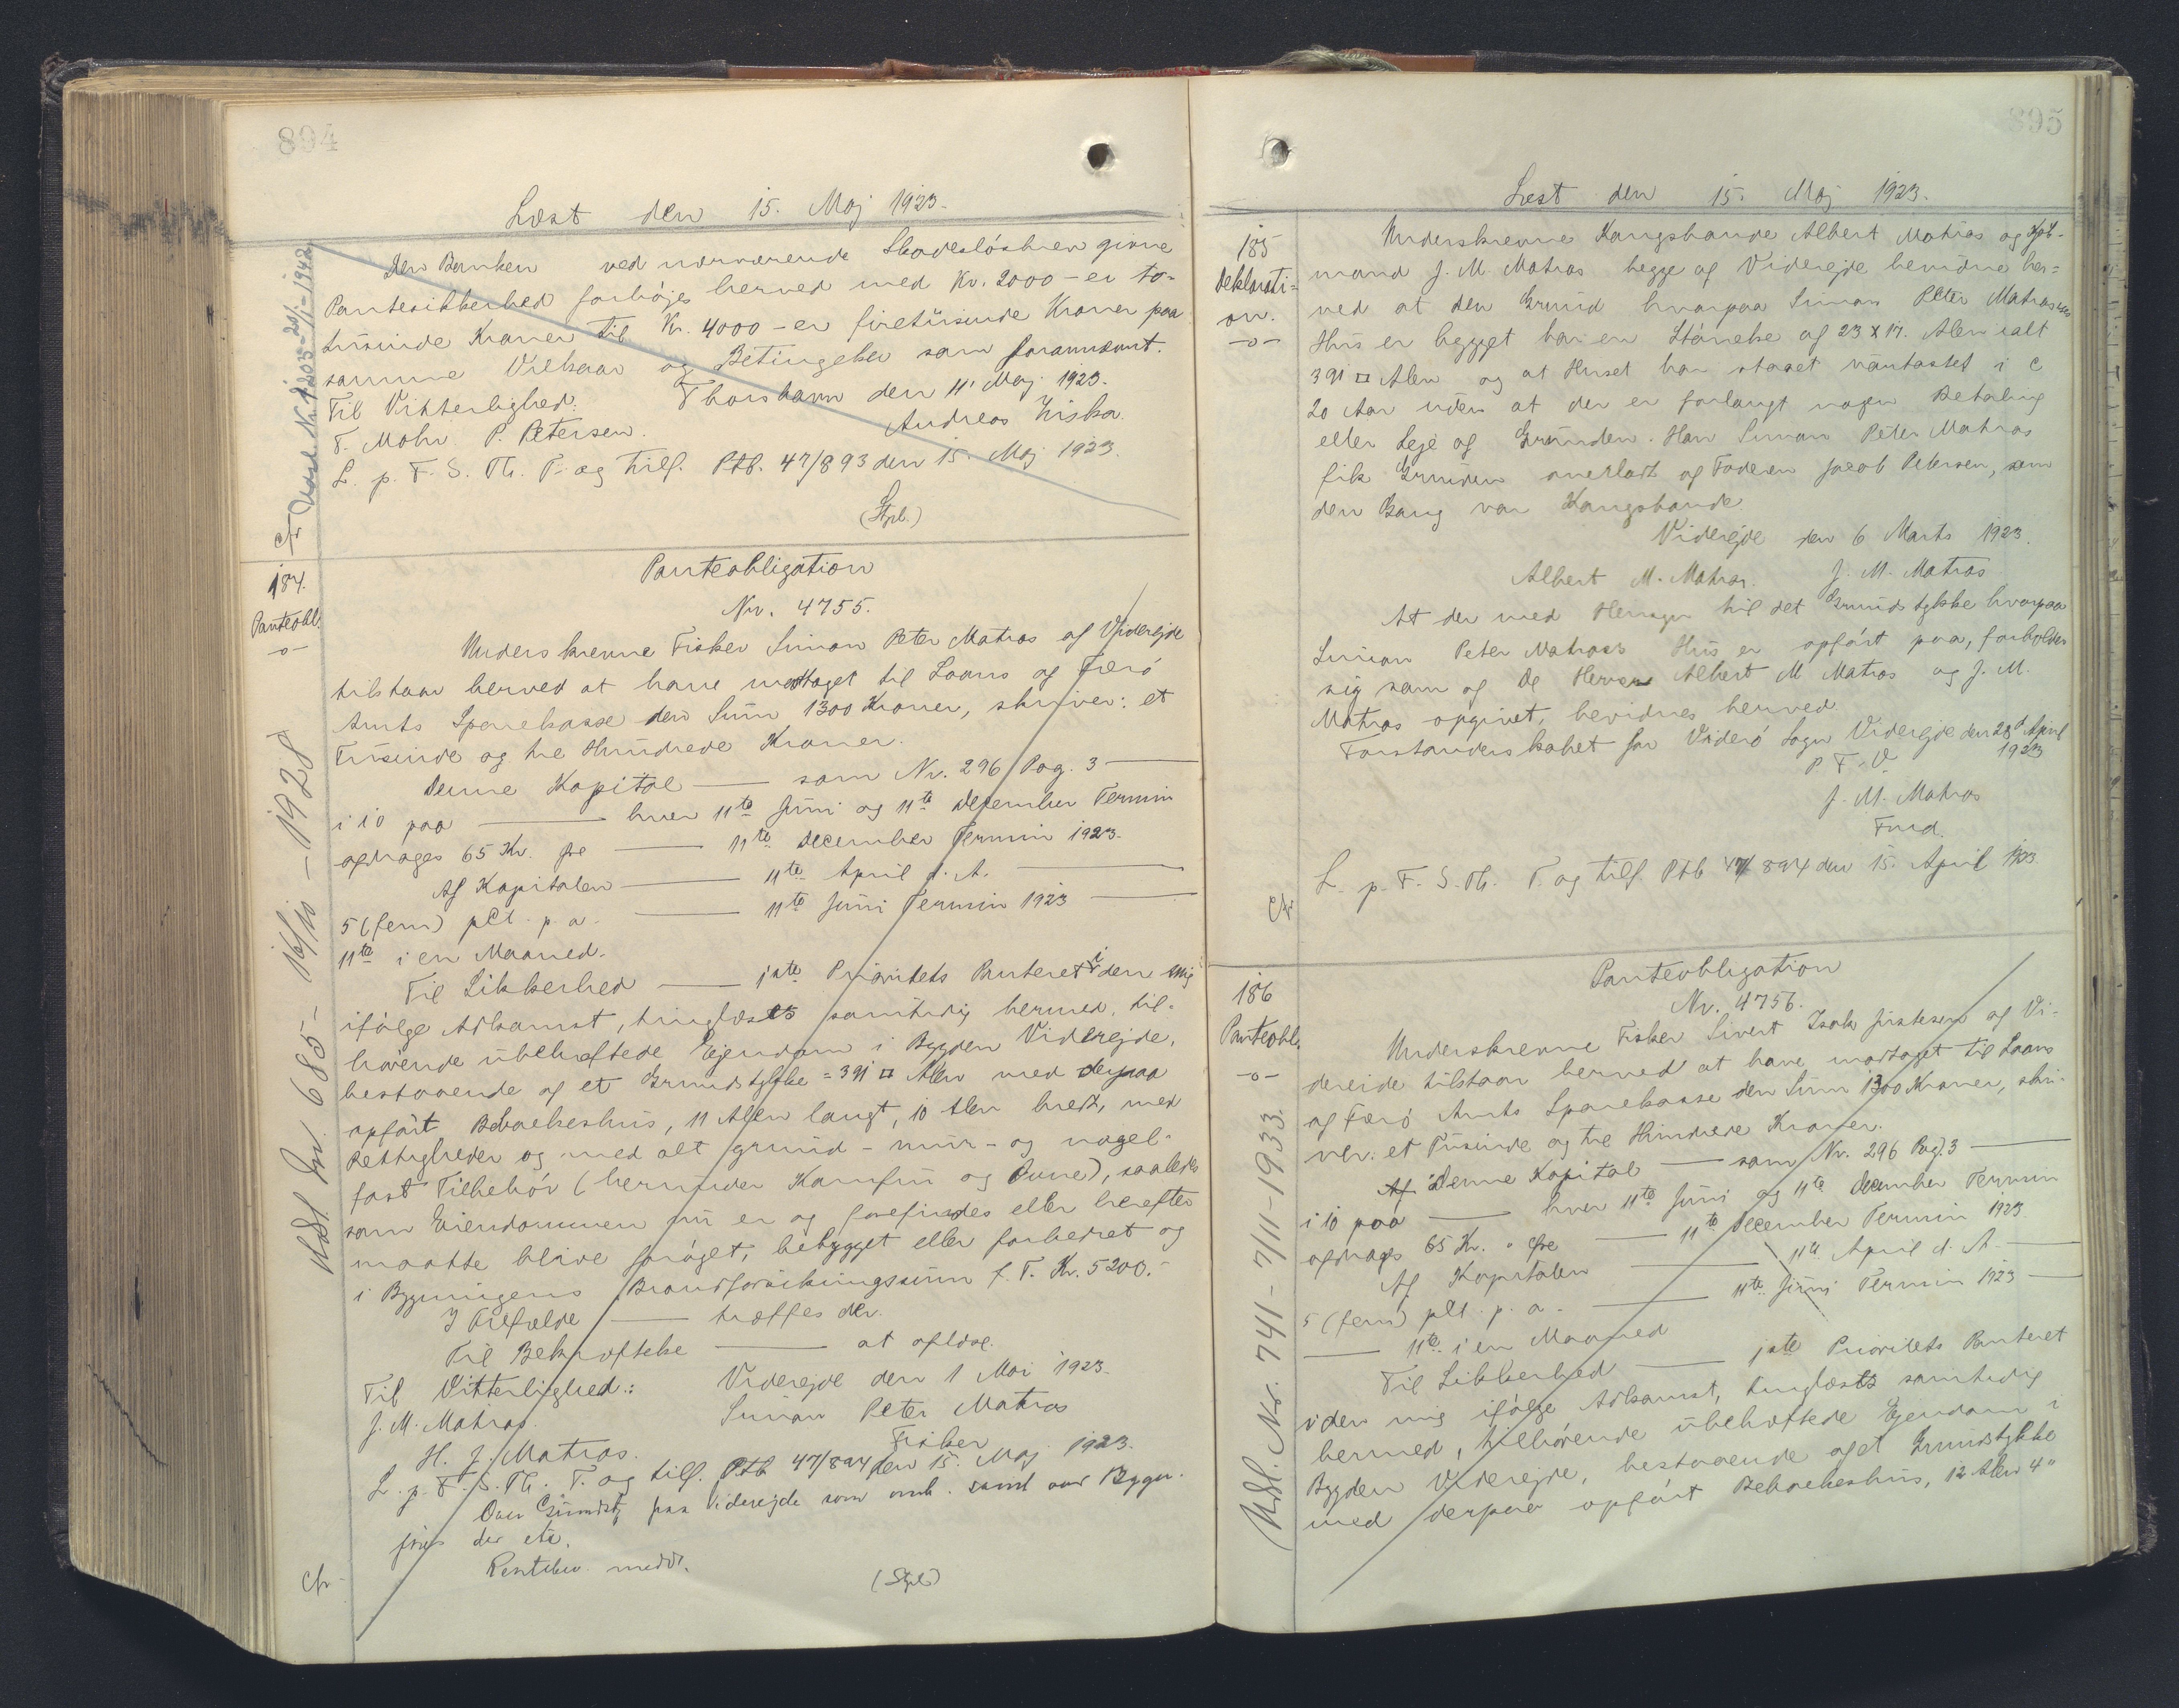 894
Læst den 15. Maj 1923.
Den Banken ved nærværende Skadesløsbrev givne
Pantesikkerhed forhöjes herved med Kr. 2000 - er to=
tusinde Kroner til Kr. 4000 - er firetusinde Kroner paa
samme Vilkaar og Betingelser som forannævnt.
Til Vitterlighed: Thorshavn den 11' Maj 1923.
F. Mohr. P. Petersen. Andreas Ziska
L. p. F. S. Th. T. og tilf. Ptb. 47/893 den 15. Maj 1923.
(Stpl.)
cfr
184.
Panteobl.
-o-
Udsl. Nr. 685 - 16/10 - 1928
Panteobligation
Nr. 4755.
Underskrevne Fisker Simon Peter Matras af Viderejde
tilstaar herved at have modtaget til Laans af Færö
Amts Sparekasse den Sum 1300 Kroner, skriver: et
Tusinde og tre Hundrede Kroner.
Denne Kapital — som Nr. 296 Pag. 3 —
i 10 paa — hver 11te Juni og 11te December Termin
afdrages 65 Kr. Øre — 11te December Termin 1923.
Af Kapitalen — 11te April d. A. —
5 (fem) pCt. p. a. — 11te Juni Termin 1923 —
11te i en Maaned.
Til Sikkerhed — 1ste Prioritets Panteret i den mig
ifølge Adkomst, tinglæses samtidig hermed, til-
hörende ubehæftede Ejendom i Bygden Viderejde,
bestaaende af et Grundstykke = 391 □ Alen med derpaa
opfört Beboelseshus, 11 Alen langt, 10 Alen bredt, med
Rettigheder og med alt grund - mur - og nagel-
fast Tilbehör (herunder Komfur og Ovne), saaledes
som Eiendommen nu er og forefindes eller herefter
maatte blive foröget, bebygget eller forbedret og
i Bygningens Brandforsikringssum f. T. Kr. 5200.-
I Tilfælde — træffes der.
Til Bekræftelse — at aflæse.
Til Vitterlighed: Viderejde den 1 Mai 1923.
J. M. Matras. Simon Peter Matras
H. J. Matras. Fisker
L. p. F. S. Th. T. og tilf. Ptb 47/894 den 15. Maj 1923.
Over Grundst. paa Viderejde som omh. samt over Bygn.
der etc.
medd.
cfr
(Stpl.)
895
Læst den 15. Maj 1923.
185
Deklarati=
on.
-o-
Underskrevne Kongsbonde Albert Matras og Köb-
mand J. M. Matras begge af Viderejde bevidne her=
ved at den Grund hvorpaa Simon Peter Matrases
Hus er bygget har en Störrelse af 23 x 17. Alen ialt
391 □ Alen og at Huset har staaet uantastet i C
20 Aar uden at der er forlangt nogen Betaling
eller Leje af Grunden. Han Simon Peter Matras
fik Grunden overladt af Faderen Jacob Petersen, som
den Gang var Kongsbonde.
Viderejde den 6 Marts 1923.
Albert M. Matras. J. M. Matras
At der med Hensyn til det Grundstykke hvorpaa
Simon Peter Matrass Hus er opfört paa, forholder
sig som af de Herrer Albert M Matras og J. M.
Matras opgivet, bevidnes herved.
Forstanderskabet for Viderö Sogn Viderejde den 28d April
P. F. V. 1923
J. M. Matras
Fmd.
L. p. F. S. Th. T. og tilf. Ptb 47/894 den 15. April 1923.
cfr
186
Panteobl.
-o-
Udsl. Nr. 741 - 7/11 - 1933.
Panteobligation
Nr. 4756.
Underskrevne Fisker Sivert Isak af Vi-
dereide tilstaar herved at have modtaget til Laans
af Færö Amts Sparekasse den Sum 1300 Kroner, skri-
ver: et Tusinde og tre Hundrede Kroner.
Af Denne Kapital — som Nr. 296 Pag. 3 —
i 10 paa — hver 11te Juni og 11te December Termin
afdrages 65 Kr. " Øre — 11te December Termin 1923
Af Kapitalen — 11te April d. A. —
5 (fem) pCt. p. a. — 11te Juni Termin 1923 —
— 11te i en Maaned
Til Sikkerhed — 1ste Prioritets Panteret
i den mig ifølge Adkomst, tinglæsts samtidig
hermed, tilhörende ubehæftede Ejendom i
Bygden Viderejde, bestaaende af et Grundstykke
med derpaa opfört Beboelseshus, 12 Alen 4"